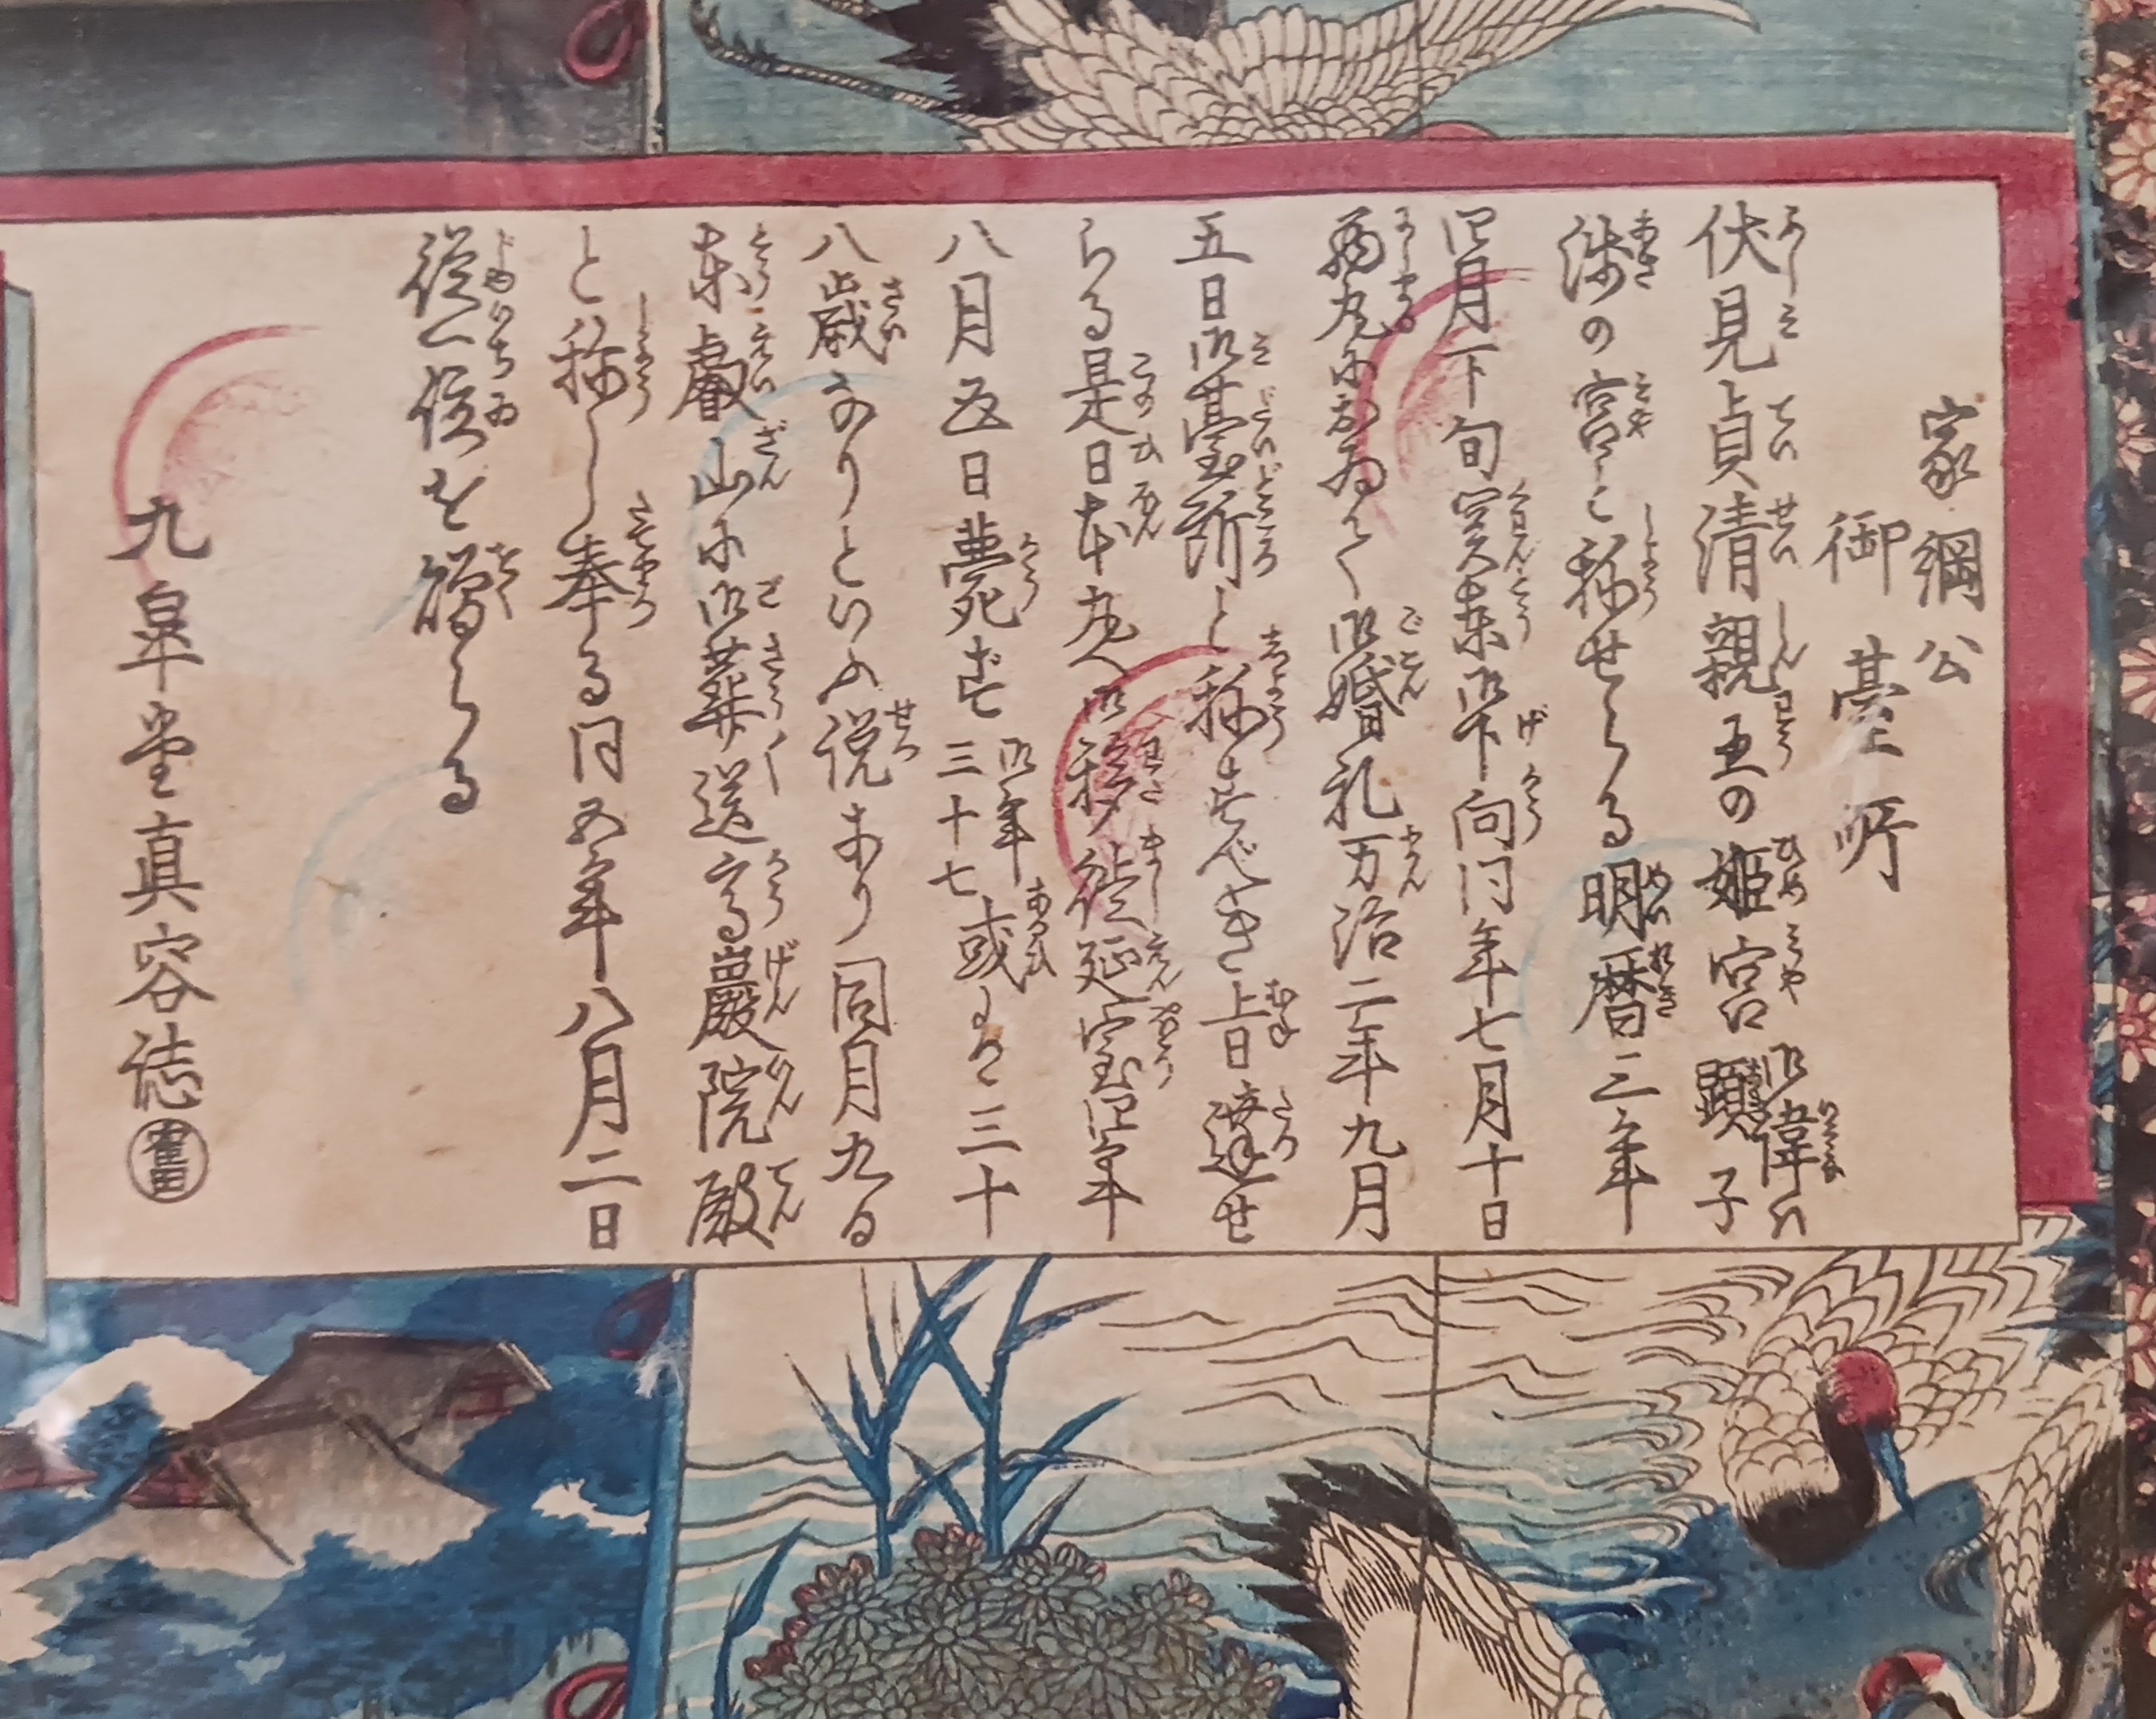 家綱公
御臺所
伏見貞清親王の姫宮御諱ハ顕子
浅の宮と称せらる明暦三年
四月下旬関東御下向同年七月十日
西丸におゐて御婚礼万治二年九月
五日御臺所と称すべき上旨達せ
らる是日本丸へ御移徙延宝四年
八月五日薨御年三十七或は三十
八歳なりといふ説あり同月九日
東叡山に御葬送高巖院殿
と称し奉る同五年八月二日
従一位を贈らる
九皐堂真容誌